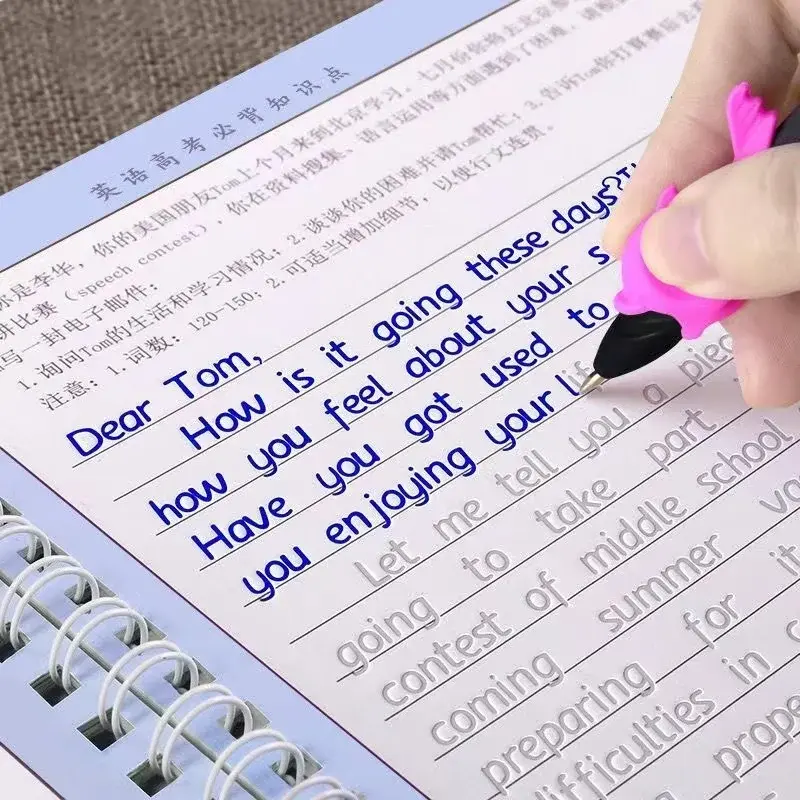 英语高考必背知识点
你是李华，你的美国朋友Tom上个月来到北京学习。七月份你将去北京
讲比赛（speech contest），你在资料搜集、语言运用等方面遇到了困难，请根据
写一封电子邮件：
1. 询问Tom的生活和学习情况；2. 谈谈你的困难并请Tom帮忙；3. 告诉Tom你打算赛后去看
注意：1. 词数：120-150；2. 可适当增加细节，以使行文连贯。
Dear Tom,
How is it going these days?
how you feel about your s
Have you got used to
you enjoying your lif
Let me tell you a piec
going to take part
contest of middle school
coming summer va
preparing for it
difficulties in c
prope